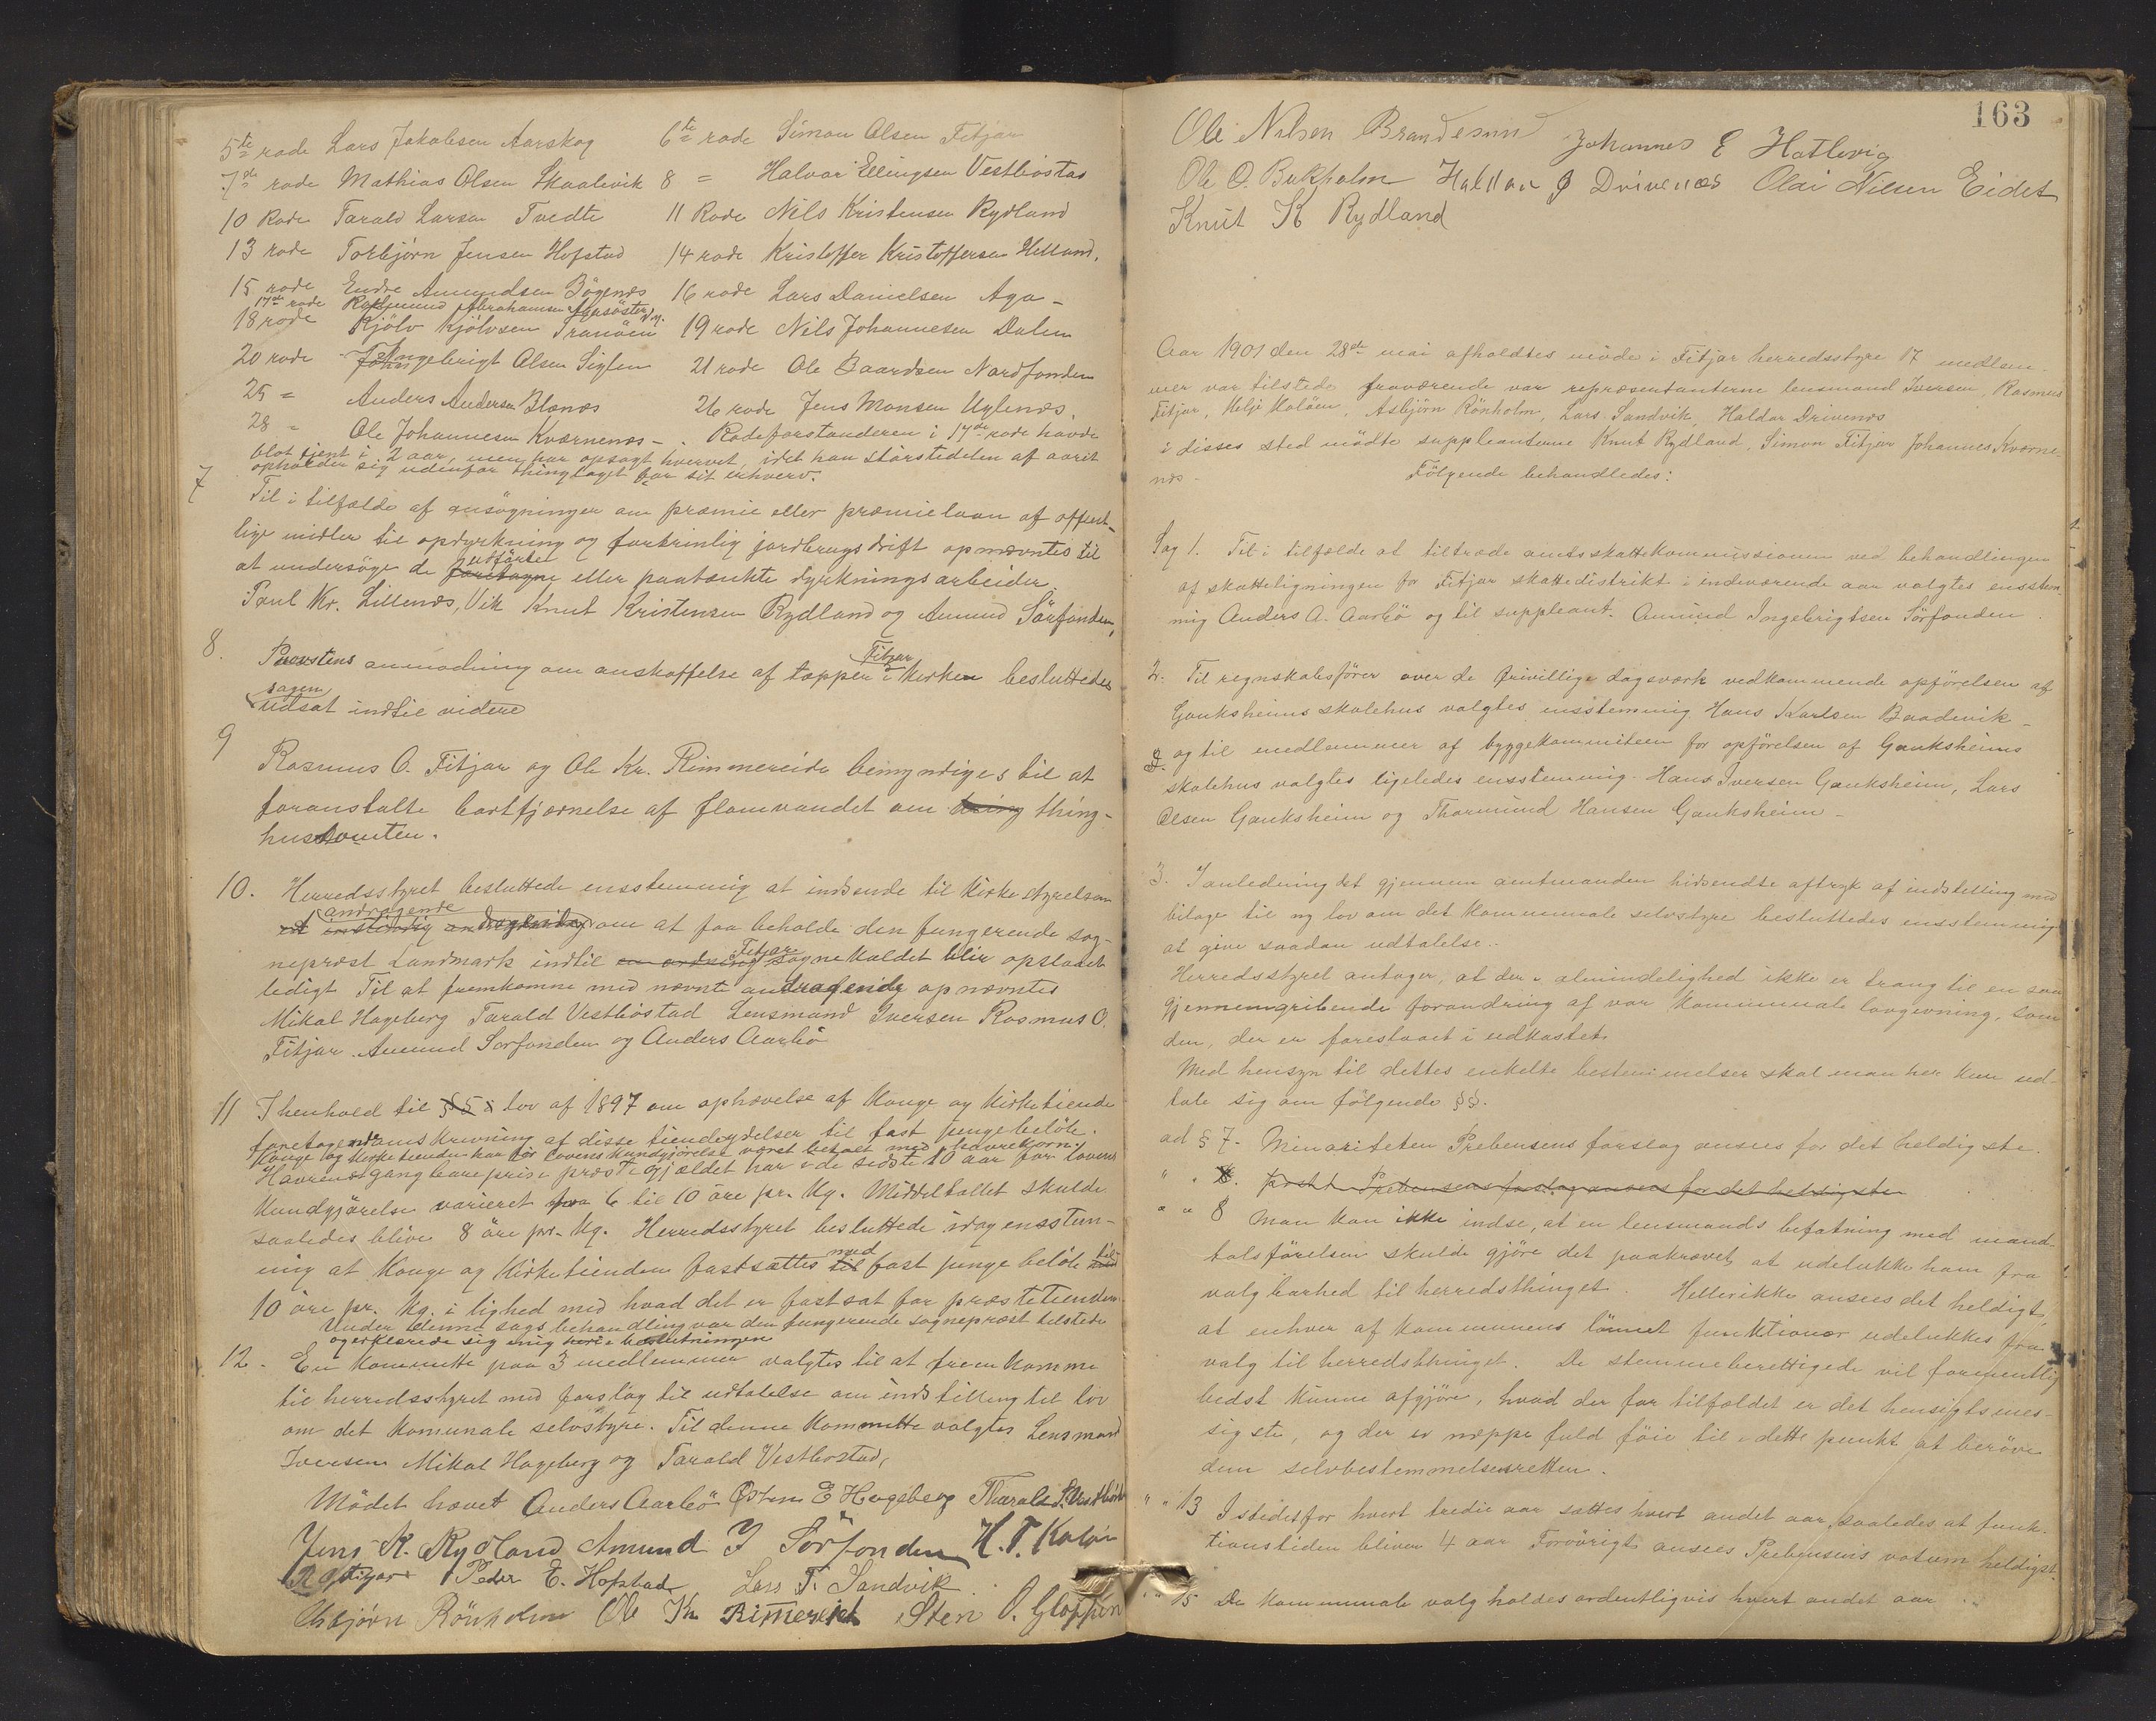 5te rode Lars Jakobsen Aarskog 6te rode Simon Olsen Fitjar
7de rode Mathias Olsen Skaalevik 8 = Halvor Ellingsen Vestböstad
10 Rode Tarald Larsen Tvedte 11 Rode Nils Kristensen Rydland
13 rode Torbjörn Jensen Hofstad 14 rode Kristoffer Kristoffersen Helland.
15 rode Endre Amundsen Bögenæs 16 rode Lars Danielsen Aga -
17de rode Rasmund Abrahamsen Agasöster
18 rode Kjölv Kjölvsen Tranöen 19 rode Nils Johannesen Dalen
20 rode Ingebrigt Olsen Siglen 21 rode Ole Baardsen Nordfonden
25 = Anders Andersen Blænes 26 rode Jens Monsen Uglenæs.
28 - Ole Johannesen Kværnenæs - . Rodeforstanderen i 17de rode havde
blot tjent i 2 aar, men har opsagt hvervet, idet han störstedelen af aaret
opholder sig udenfor thinglaget har sit erhverv.
7 Til i tilfælde af ansögninger om præmie eller præmielaan af offent-
lige midler til opdyrkning og fortrinlig jordbrugsdrift opnævntes til
at undersöge de foretagne udförte eller paatænkte dyrkningsarbeider.
Paul Kr. Lillenæs, Vik Knut Kristensen Rydland og Amund Sörfonden,
8. Provstens anmodning om anskaffelse af tæpper i Fitjar kirken besluttedes
sagen udsat indtil videre
9 Rasmus O. Fitjar og Ole Kr. Rimmereide bemyndiges til at
foranstalte bortfjærnelse af flomvandet om thing thing-
hustomten.
10. Herredsstyret besluttede enstemmig at indsende til Kirkestyrelsen
et andragende om at faa beholde den fungerende sog-
neprest Landmark indtil Fitjar sognekaldet blir opslaaet
ledigt Til at fremkomme med nævnte andragende opnævntes
Mikal Hageberg Tarald Vestböstad Lensmand Iversen Rasmus O.
Fitjar. Amund Sørfonden og Anders Aarbö
11 I henhold til § 5 i lov af 1897 om ophævelse af Konge og Kirketiende
foretoges omskrivning af disse tiendeydelser til fast pengebelöb.
Konge og Kirketienden har før lovens kundgjörelse været betalt med havrekorn.
Havrens gangbare pris i præstegjældet har i de sidste 10 aar før lovens
Kundgjörelse varieret fra 6 til 10 öre pr. Kg. Middeltallet skulde
saaledes blive 8 öre pr. Kg. Herredsstyret besluttede idag enstem-
mig at Konge og Kirketienden fastsættes til med fast penge belöb med til
10 öre pr. Kg. i lighed med hvad det er fastsat for præstetienden.
Under denne sags behandling var den fungerende sogneprest tilstede
og erklærede sig enig heri i beslutningen
12. En kommitte paa 3 medlemmer valgtes til at fremkomme
til herredsstyret med forslag til udtalelse om indstilling til lov
om det komunale selvstyre. Til denne kommitte valgtes Lensmand
Iversen Mikal Hageberg og Tarald Vestbostad,
Mödet hævet Anders Aarbö Østen E Hageberg Tharald L. Vestböstad
Jens K. Rydland Amund I Sörfonden H. T. Kalöen
R O Fitjar Peder E. Hofstad Lars T. Sandvik
Asbjørn Rönholm Ole Kr Rimereid Sten O. Gloppen
163
Ole Nilsen Brandesund Johannes E Hatlevig
Ole O. Bukholm Haldor J Drivenæs Olai Nilsen Eidet
Knut K Rydland
Aar 1901 den 28de mai afholdtes möde i Fitjar herredsstyre 17 medlem-
mer var tilstede fraværende var repræsentanterne lensmand Iversen, Rasmus
Fitjar, Helje Kalöen, Asbjörn Rönholm, Lars Sandvik, Haldor Drivenæs
i disses sted mödte suppleanterne Knut Rydland, Simon Fitjar Johannes Kværne-
næs - Fölgende behandledes:
Sag 1. Til i tilfælde at tiltræde amtsskattekommissionen ved behandlingen
af skatteligningen for Fitjar skattedistrikt i indeværende aar valgtes ensstem-
mig Anders A. Aarbö og til suppleant. Amund Ingebrigtsen Sörfonden
2. Til regnskabsförer over de frivillige dagsværk vedkommende opförelsen af
Gauksheims skolehus valgtes ensstemmig Hans Karlsen Baadevik -
og til medlemmer af byggekommiteen for opförelsen af Gauksheims
skolehus valgtes ligeledes ensstemmig. Hans Iversen Gauksheim, Lars
Olsen Gauksheim og Thormund Hansen Gauksheim -
3. I anledning det gjennem amtmanden hidsendte aftryk af indstilling med
bilage til ny lov om det kommunale selvstyre besluttedes ensstemmig
at give saadan udtalelse. -
Herredsstyret antager, at der i almindelighed ikke er trang til en saa
gjennemgribende forandring af vor kommunale lovgivning, som
den, der er foreslaaet i udkastet.
Med hensyn til dettes enkelte bestemmelser skal man her kun ud-
tale sig om fölgende §§.
ad § 7 - Minoriteten Prebensens forslag ansees for det heldigste.
" " 8. Prebensens forslag ansees for det heldigste
" " 8 Man kan ikke indse, at en lensmands befatning med mand-
talsförelsen skulde gjöre det paakrævet, at udelukke ham fra
valgbarhed til herredsthinget. Heller ikke ansees det heldigt,
at enhver af kommunens lönnet funktionær udelukkes fra
valg til herredsthinget. De stemmeberettigede vil formentlig
bedst kunne afgjöre, hvad der for tilfældet er det hensigtsmæs-
sigste, og der er neppe fuld föie til i dette punkt at beröve
dem selvbestemmelsesretten.
" " 13 Istedetfor hvert tredie aar sættes hvert andet aar, saaledes at funk-
tionstiden bliver 4 aar Forövrigt ansees Prebensens votum heldigst.
" " 15 De kommunale valg holdes ordentligvis hvert andet aar